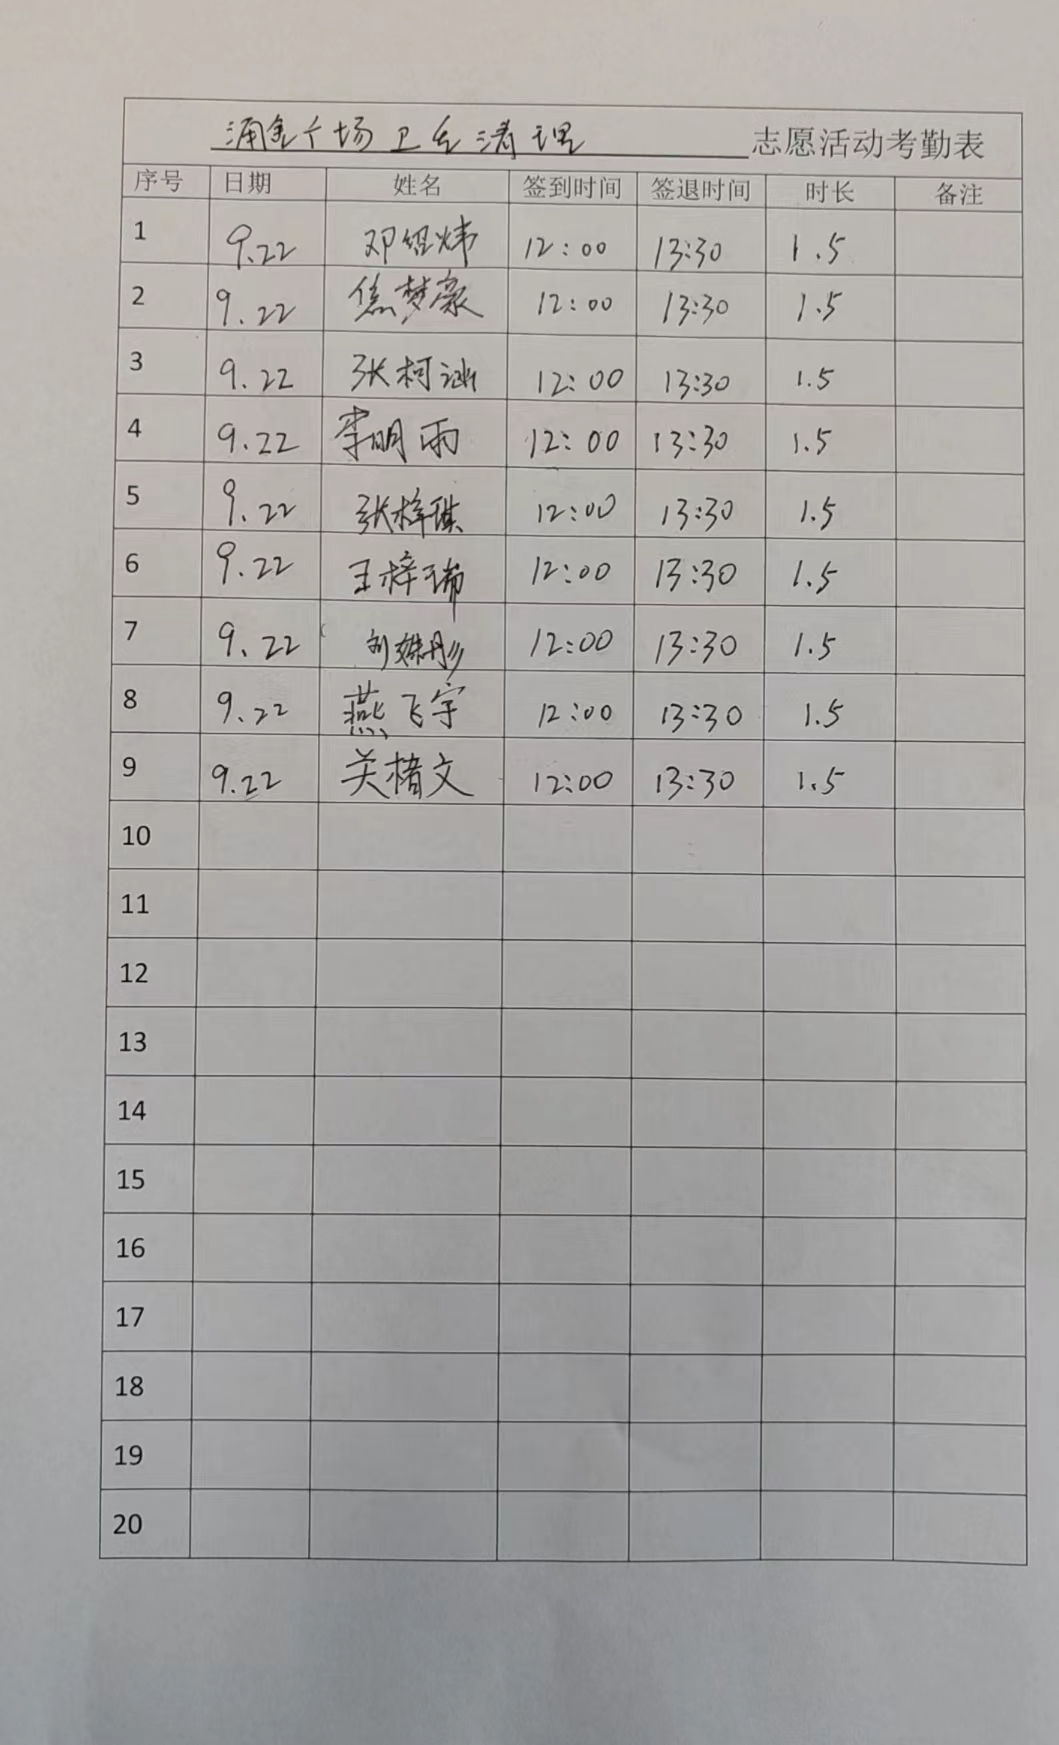 涌金广场卫生清理 志愿活动考勤表
序号 日期 姓名 签到时间 签退时间 时长 备注
1 9.22 邓绍炜 12:00 13:30 1.5
2 9.22 焦梦豪 12:00 13:30 1.5
3 9.22 张柯涵 12:00 13:30 1.5
4 9.22 李明雨 12:00 13:30 1.5
5 9.22 张梓琪 12:00 13:30 1.5
6 9.22 王梓瑞 12:00 13:30 1.5
7 9.22 刘姝彤 12:00 13:30 1.5
8 9.22 燕飞宇 12:00 13:30 1.5
9 9.22 关楮文 12:00 13:30 1.5
10
11
12
13
14
15
16
17
18
19
20